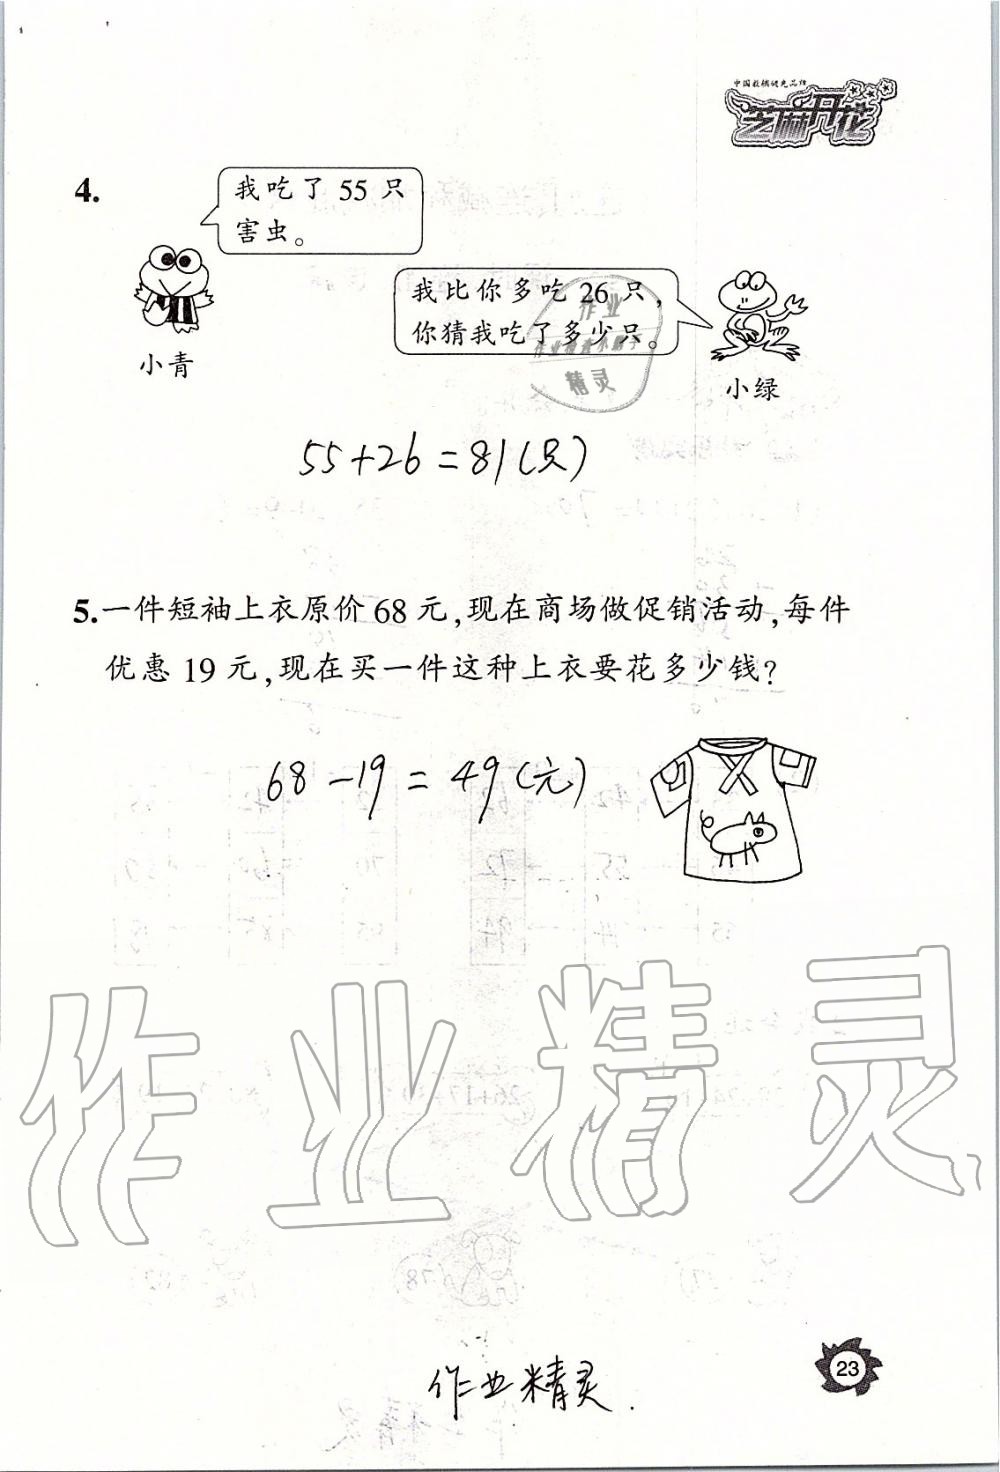 中国教辅领先品牌
芝麻开花
4.
我吃了 55 只
害虫。
我比你多吃 26 只,
你猜我吃了多少只。
作业
作业检查小助手
精灵
小青
小绿
55+26=81(只)
5.一件短袖上衣原价 68 元,现在商场做促销活动,每件
优惠 19 元,现在买一件这种上衣要花多少钱?
68-19=49(元)
作业精灵
作业精灵
23